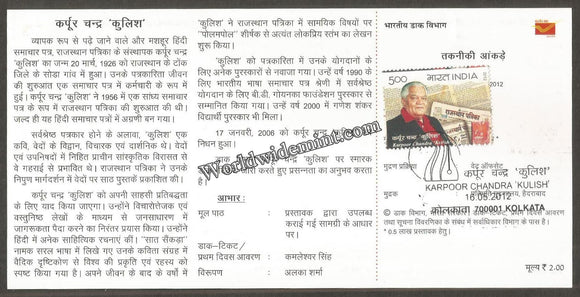 कर्पूर चन्द्र 'कुलिश'
व्यापक रूप से पढ़े जाने वाले और मशहूर हिंदी
समाचार पत्र, राजस्थान पत्रिका के संस्थापक कर्पूर चन्द्र
'कुलिश' का जन्म 20 मार्च, 1926 को राजस्थान के टोंक
जिले के सोडा गांव में हुआ। उनके पत्रकारिता जीवन की
शुरुआत एक समाचार पत्र में कर्मचारी के रूप में
हुई। कर्पूर चन्द्र 'कुलिश' ने 1956 में एक सांध्य समाचार-
पत्र के रूप में राजस्थान पत्रिका की शुरुआत की थी।
जल्द ही यह हिंदी समाचार पत्रों में अग्रणी बन गया।
सर्वश्रेष्ठ पत्रकार होने के अलावा, 'कुलिश' एक
कवि, वेदों के विद्वान, विचारक एवं दार्शनिक थे। वेदों
एवं उपनिषदों में निहित प्राचीन सांस्कृतिक विरासत से
वे गहराई से प्रभावित थे। राजस्थान पत्रिका ने उनके
निपुण मार्गदर्शन में वेदों पर साठ पुस्तकें प्रकाशित की.
कर्पूर चन्द्र 'कुलिश' को अपनी साहसी प्रतिबद्धता
के लिए याद किया जाएगा। उन्होंने विचारोत्तेजक एवं
वस्तुनिष्ठ लेखों के माध्यम से जनसाधारण में
जागरूकता पैदा करने का निरंतर प्रयास किया। उन्होंने
हिंदी में अनेक साहित्यिक रचनाएं कीं। "सात सैंकड़ा"
नामक सरल भाषा में लिखे गए उनके कविता संग्रह में
वैदिक दृष्टिकोण से विश्व की प्रकृति एवं रहस्य को
स्पष्ट किया गया है। अपने जीवन के बाद के वर्षों में
'कुलिश' ने राजस्थान पत्रिका में सामयिक विषयों पर
"पोलमपोल" शीर्षक से अत्यंत लोकप्रिय स्तंभ का लेखन
शुरू किया।
'कुलिश' को पत्रकारिता में उनके योगदानों के
लिए अनेक पुरस्कारों से नवाजा गया। उन्हें वर्ष 1990 के
लिए भारतीय भाषा समाचार पत्र श्रेणी में सर्वश्रेष्ठ
योगदान के लिए बी.डी. गोयनका फाउंडेशन पुरस्कार से
सम्मानित किया गया। उन्हें वर्ष 2000 में गणेश शंकर
विद्यार्थी पुरस्कार भी मिला।
17 जनवरी, 2006 को कर्पूर चन्द्र
निधन हुआ।
चन्द्र 'कुलिश' पर स्मारक
जारी करते हुए प्रसन्नता का अनुभव करता है।
आधार :
मूल पाठ : प्रस्तावक द्वारा उपलब्ध
कराई गई सामग्री के आधार पर।
डाक–टिकट/
प्रथम दिवस आवरण : कमलेश्वर सिंह
विरूपण : अलका शर्मा
भारतीय डाक विभाग
तकनीकी आंकड़े
2012
5.00 भारत INDIA
कर्पूर चन्द्र 'कुलिश'
Karpoor Chandra 'Kulish'
राजस्थान पत्रिका
मुद्रण प्रक्रिया : वेट ऑफसेट
कर्पूर चन्द्र 'कुलिश'
KARPOOR CHANDRA 'KULISH'
मुद्रक : प्रतिभूति मुद्रणालय, हैदराबाद
16.05.2012
कोलकाता 700001 KOLKATA
© डाक विभाग, भारत सरकार। डाक टिकट, प्रथम दिवस आवरण
तथा सूचना विवरणिका के संबंध में सर्वाधिकार विभाग के पास है।
* 0.5 लाख हस्तांतरित
मूल्य ₹ 2.00
Worldwidemint.com